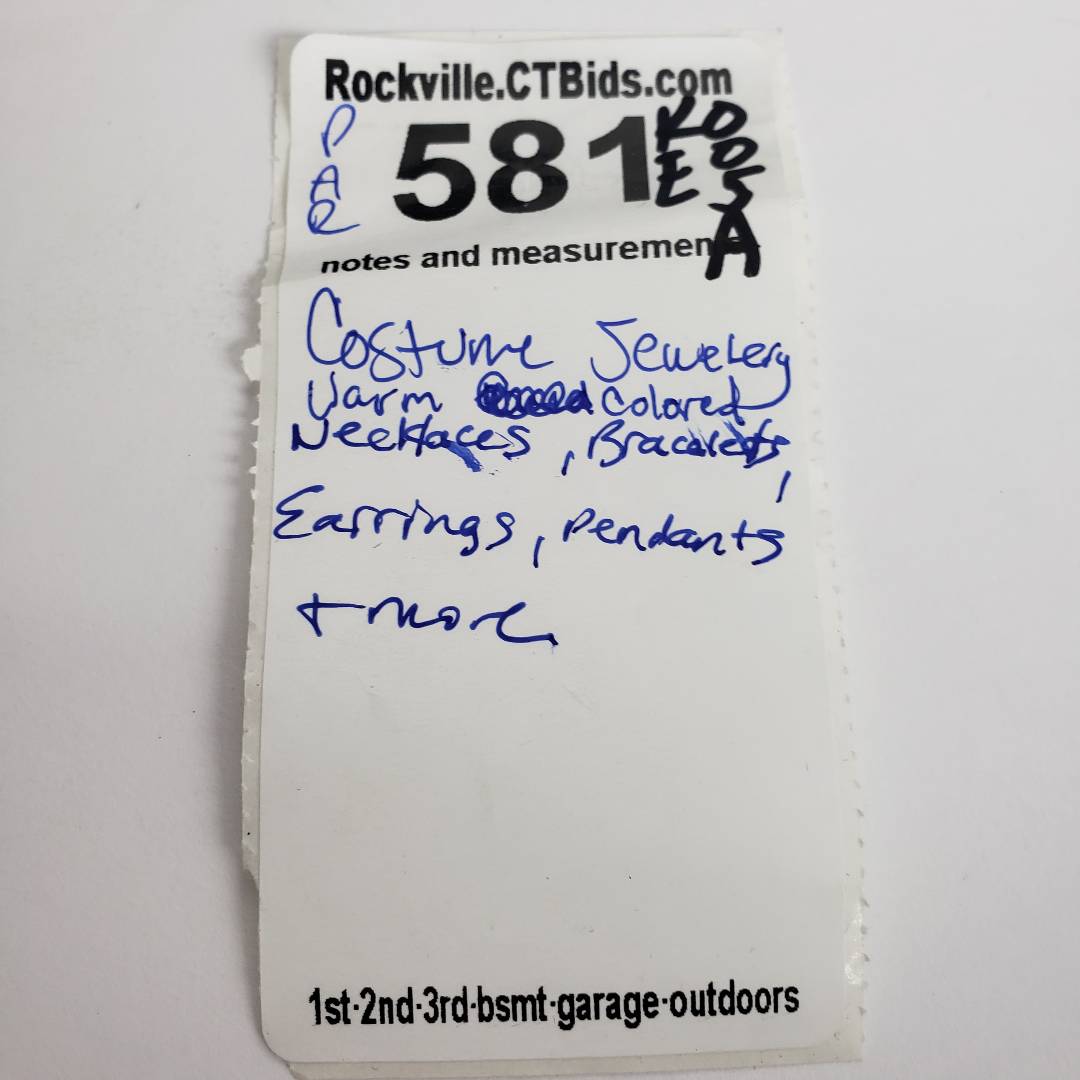 Rockville.CTBids.com
PAR
581
KE
005A
notes and measuremen
Costume Jewelery
Warm colored
Necklaces, Bracelets,
Earrings, Pendants
+ more
1st·2nd·3rd·bsmt·garage·outdoors